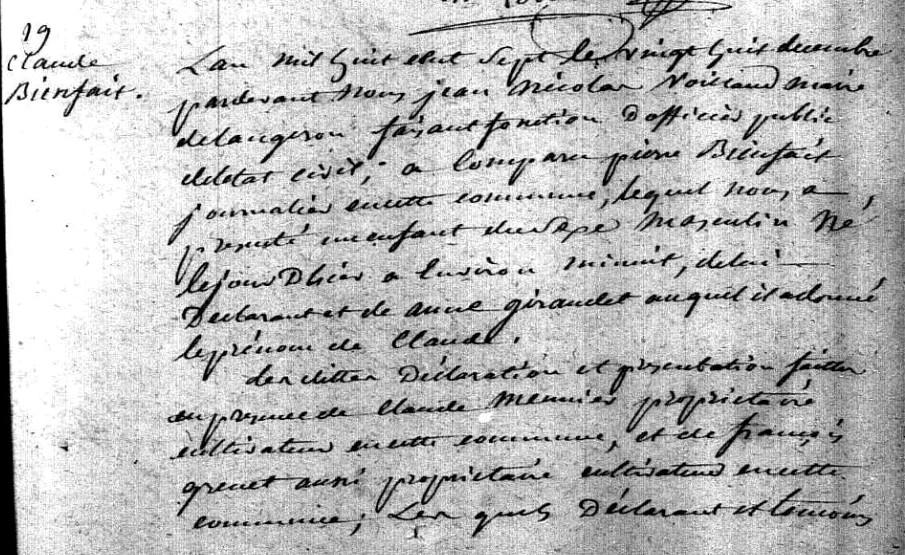 19
Claude
Bienfait.
Lan mil huit cent sept le vingt huit decembre
pardevant nous jean Nicolas Voilland maire
delangeron faisant fonction Dofficier public
deletat civil, a Comparu pierre Bienfait
journalier encette commune, lequel nous a
presenté un enfant du sexe Masculin Né
lejour Dhier a lenviron minuit, delui
Déclarant et de anne giraudet auquel il adonné
leprénom de Claude.
Lesdittes Déclaration et présentation faittes
en presence de Claude Meunier propriétaire
cultivateur encette commune, et de françois
grenet aussi propriétaire cultivateur encette
commune; Les quels Déclarant et temoins